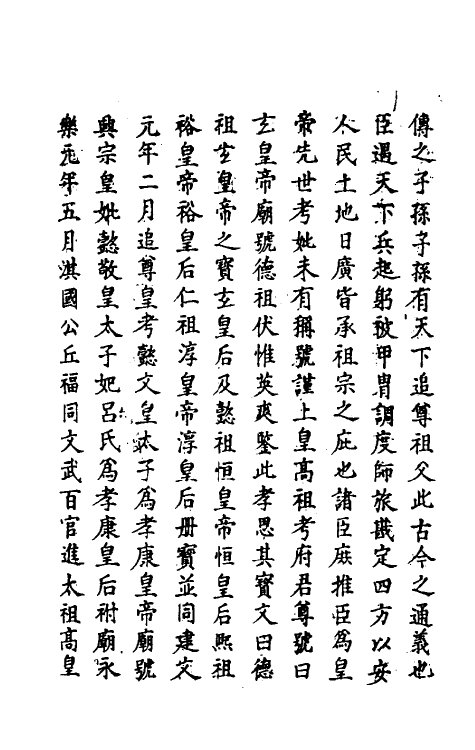 傳之子孫子孫有天下追尊祖父此古今之通義也
臣遇天下兵起躬被甲胄調度師旅戡定四方以安
人民土地日廣皆承祖宗之庇也諸臣庶推臣為皇
帝先世考妣未有稱號謹上皇高祖考府君尊號曰
玄皇帝廟號德祖伏惟英爽鑒此孝思其寶文曰德
祖玄皇帝之寶玄皇后及懿祖恒皇帝恒皇后熙祖
裕皇帝裕皇后仁祖淳皇帝淳皇后册寶並同建文
元年二月追尊皇考懿文皇太子為孝康皇帝廟號
興宗皇妣懿敬皇太子妃呂氏為孝康皇后祔廟永
樂元年五月淇國公丘福同文武百官進太祖高皇